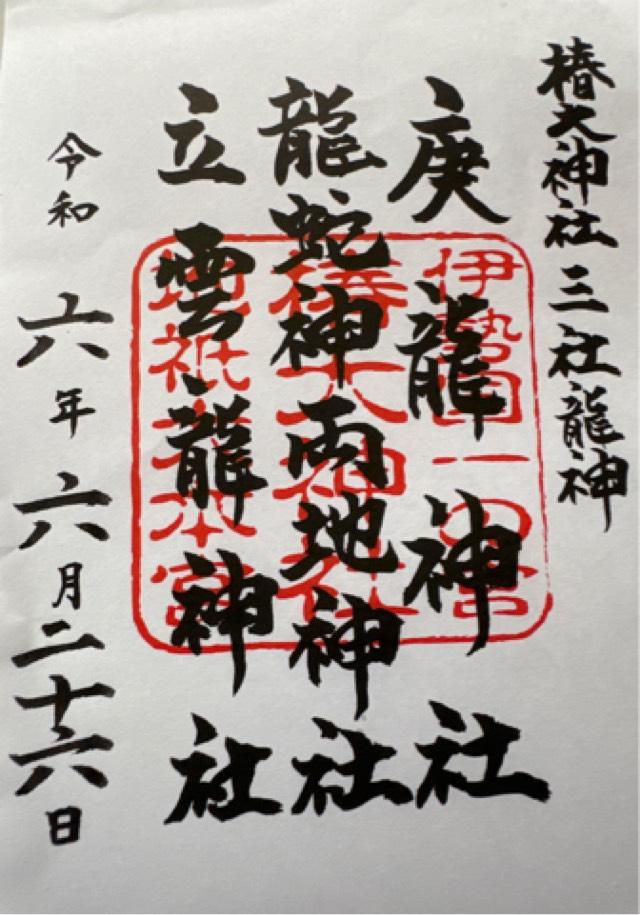 椿大神社三社龍神
庚龍神社
龍蛇神両地神社
立雲龍神社
令和六年六月二十六日
伊勢国一の宮
椿大神社
地祇大本宮